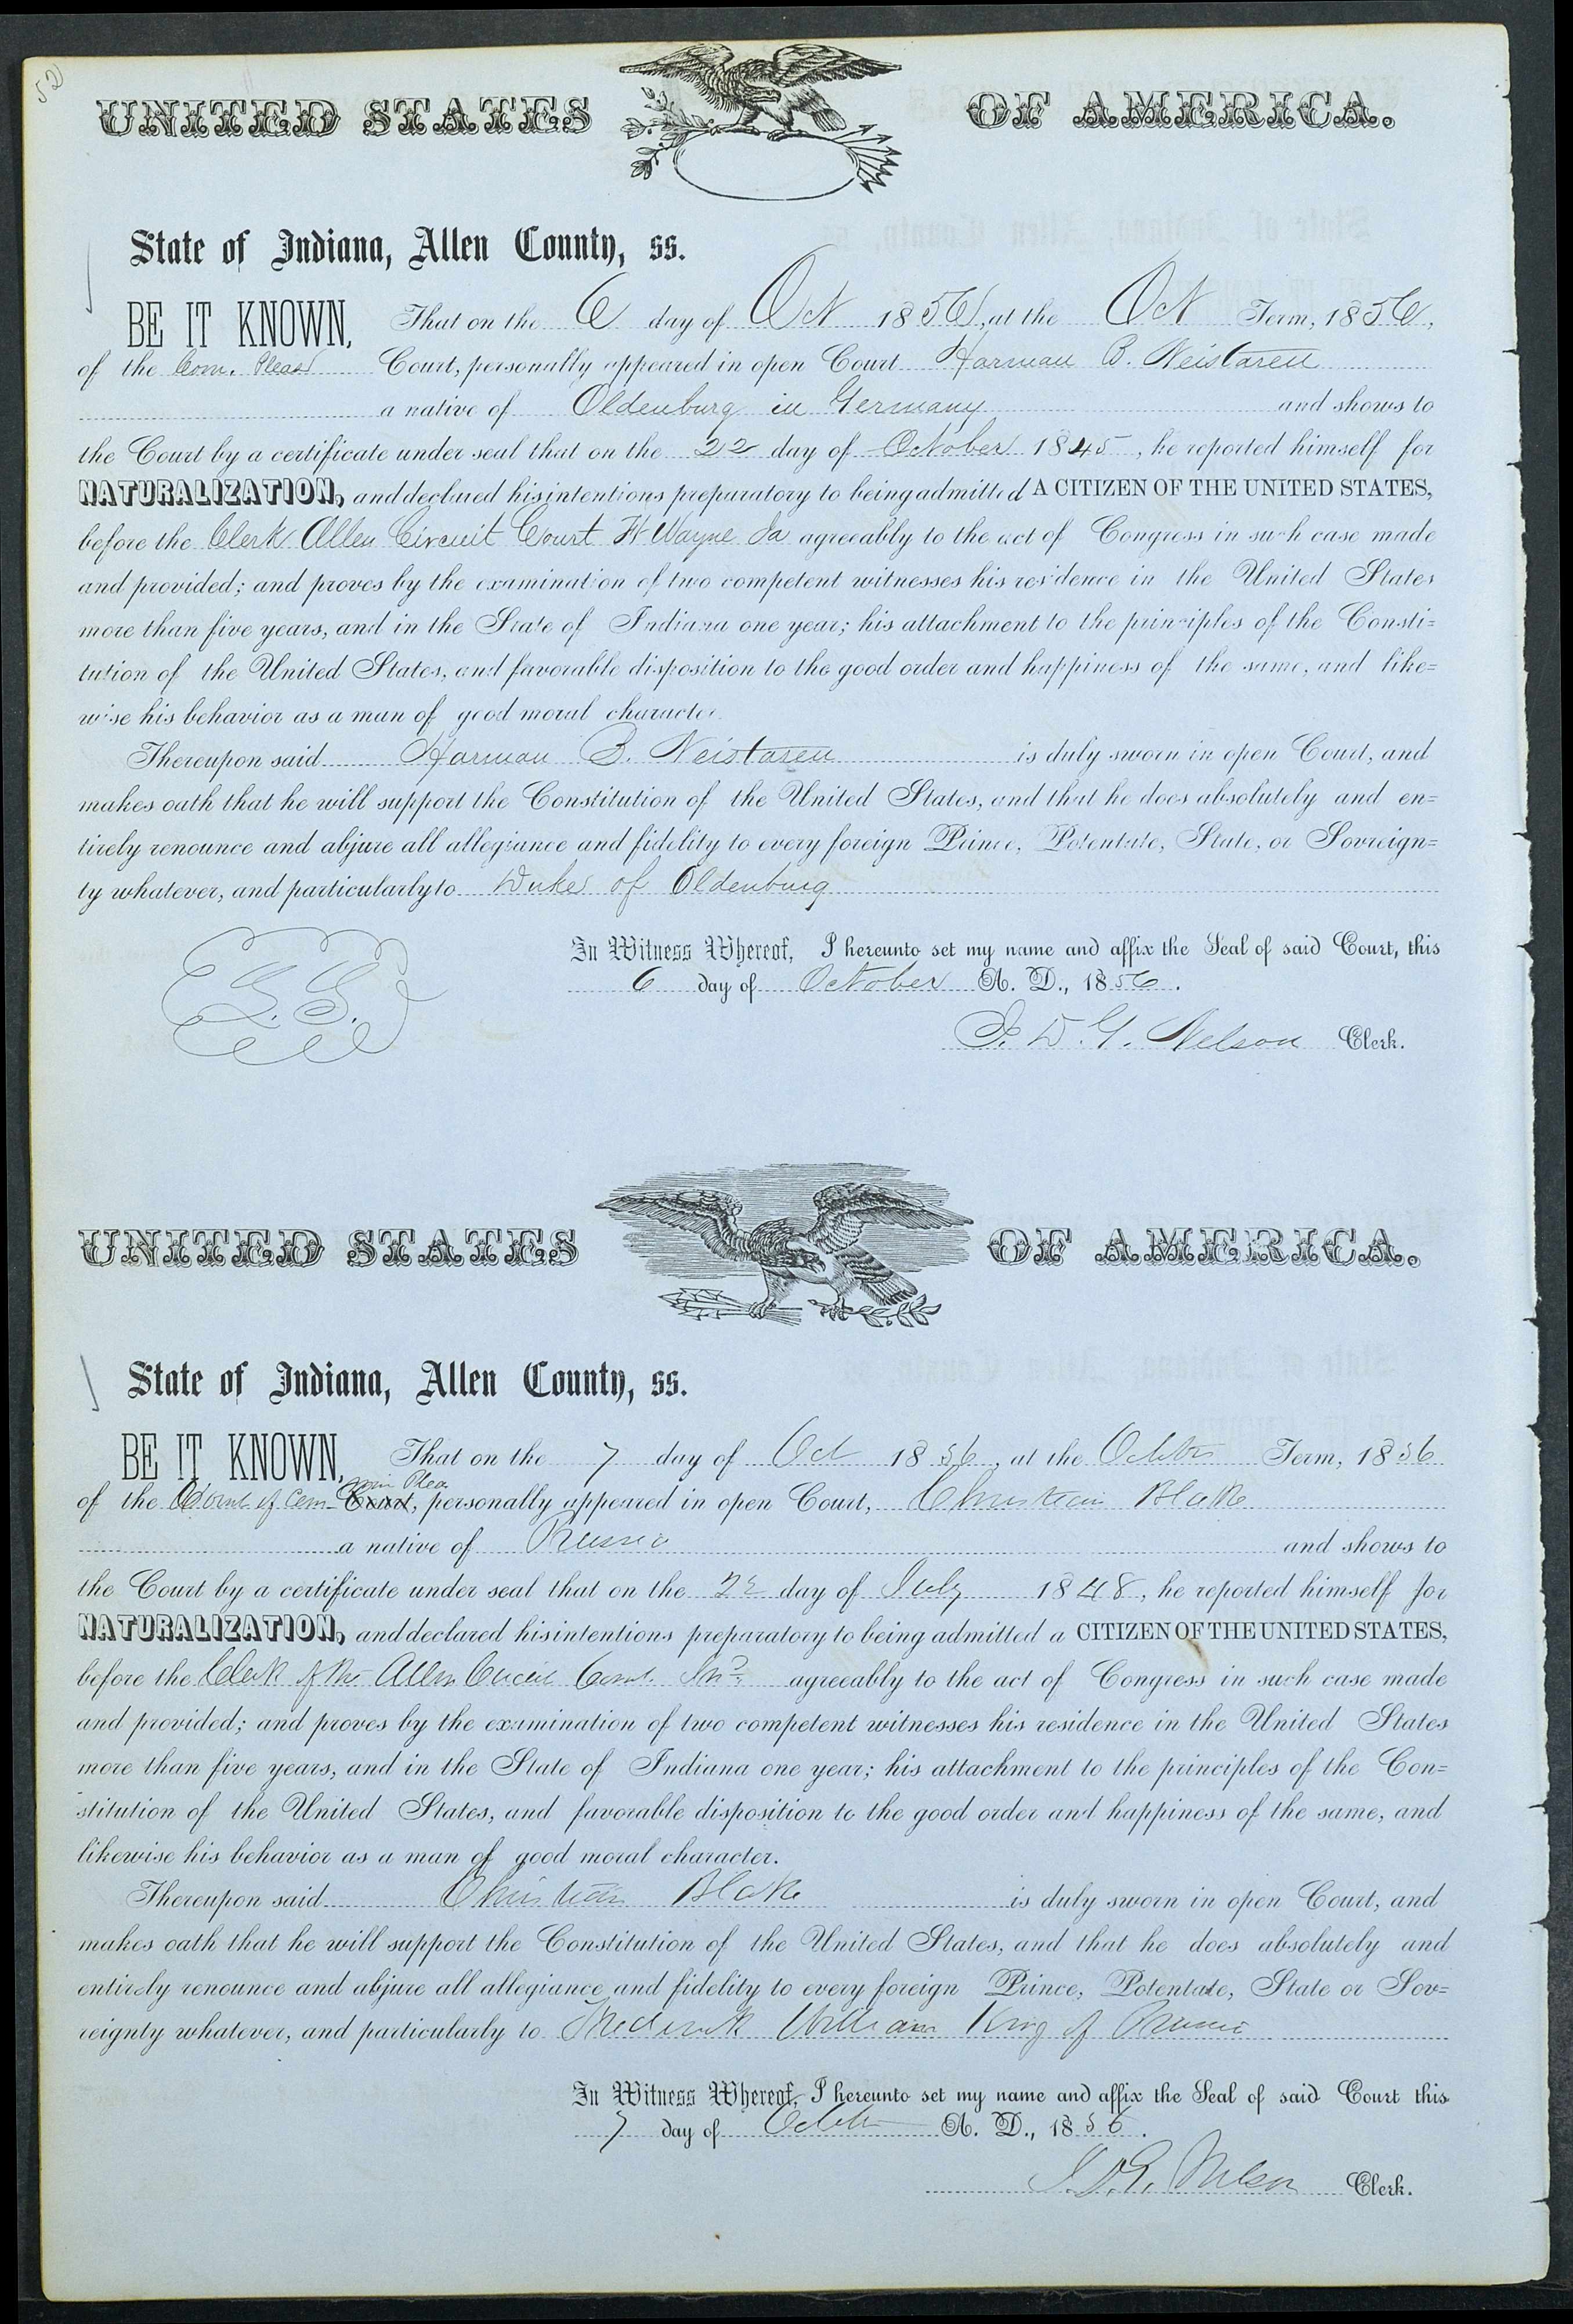 52
UNITED STATES OF AMERICA.
State of Indiana, Allen County, ss.
BE IT KNOWN, That on the 6 day of Oct 1856, at the Oct Term, 1856,
of the Com. Pleas Court, personally appeared in open Court Harman B. Neistaren
a native of Oldenburg in Germany and shows to
the Court by a certificate under seal that on the 22 day of October 1845, he reported himself for
NATURALIZATION, and declared his intentions preparatory to being admitted A CITIZEN OF THE UNITED STATES,
before the Clerk Allen Circuit Court Ft Wayne Ia agreeably to the act of Congress in such case made
and provided; and proves by the examination of two competent witnesses his residence in the United States
more than five years, and in the State of Indiana one year; his attachment to the principles of the Consti=
tution of the United States, and favorable disposition to the good order and happiness of the same, and like=
wise his behavior as a man of good moral character.
Thereupon said Harman B. Neistaren is duly sworn in open Court, and
makes oath that he will support the Constitution of the United States, and that he does absolutely and en=
tirely renounce and abjure all allegiance and fidelity to every foreign Prince, Potentate, State, or Sovreign=
ty whatever, and particularly to Duke of Oldenburg
In Witness Whereof, I hereunto set my name and affix the Seal of said Court, this
6 day of October A. D., 1856.
I. D. G. Nelson Clerk.
UNITED STATES OF AMERICA.
State of Indiana, Allen County, ss.
BE IT KNOWN, That on the 7 day of Oct 1856, at the Octbr Term, 1856
of the Court of Com- mon Pleas Court, personally appeared in open Court, Christian Blake
a native of Prussia and shows to
the Court by a certificate under seal that on the 22 day of July 1848, he reported himself for
NATURALIZATION, and declared his intentions preparatory to being admitted a CITIZEN OF THE UNITED STATES,
before the Clerk of the Allen Circuit Court Ina agreeably to the act of Congress in such case made
and provided; and proves by the examination of two competent witnesses his residence in the United States
more than five years, and in the State of Indiana one year; his attachment to the principles of the Con=
stitution of the United States, and favorable disposition to the good order and happiness of the same, and
likewise his behavior as a man of good moral character.
Thereupon said Christian Blake is duly sworn in open Court, and
makes oath that he will support the Constitution of the United States, and that he does absolutely and
entirely renounce and abjure all allegiance and fidelity to every foreign Prince, Potentate, State or Sov=
reignty whatever, and particularly to Frederick William King of Prussia
In Witness Whereof, I hereunto set my name and affix the Seal of said Court this
7 day of Octbr A. D., 1856.
I. D. G. Nelson Clerk.